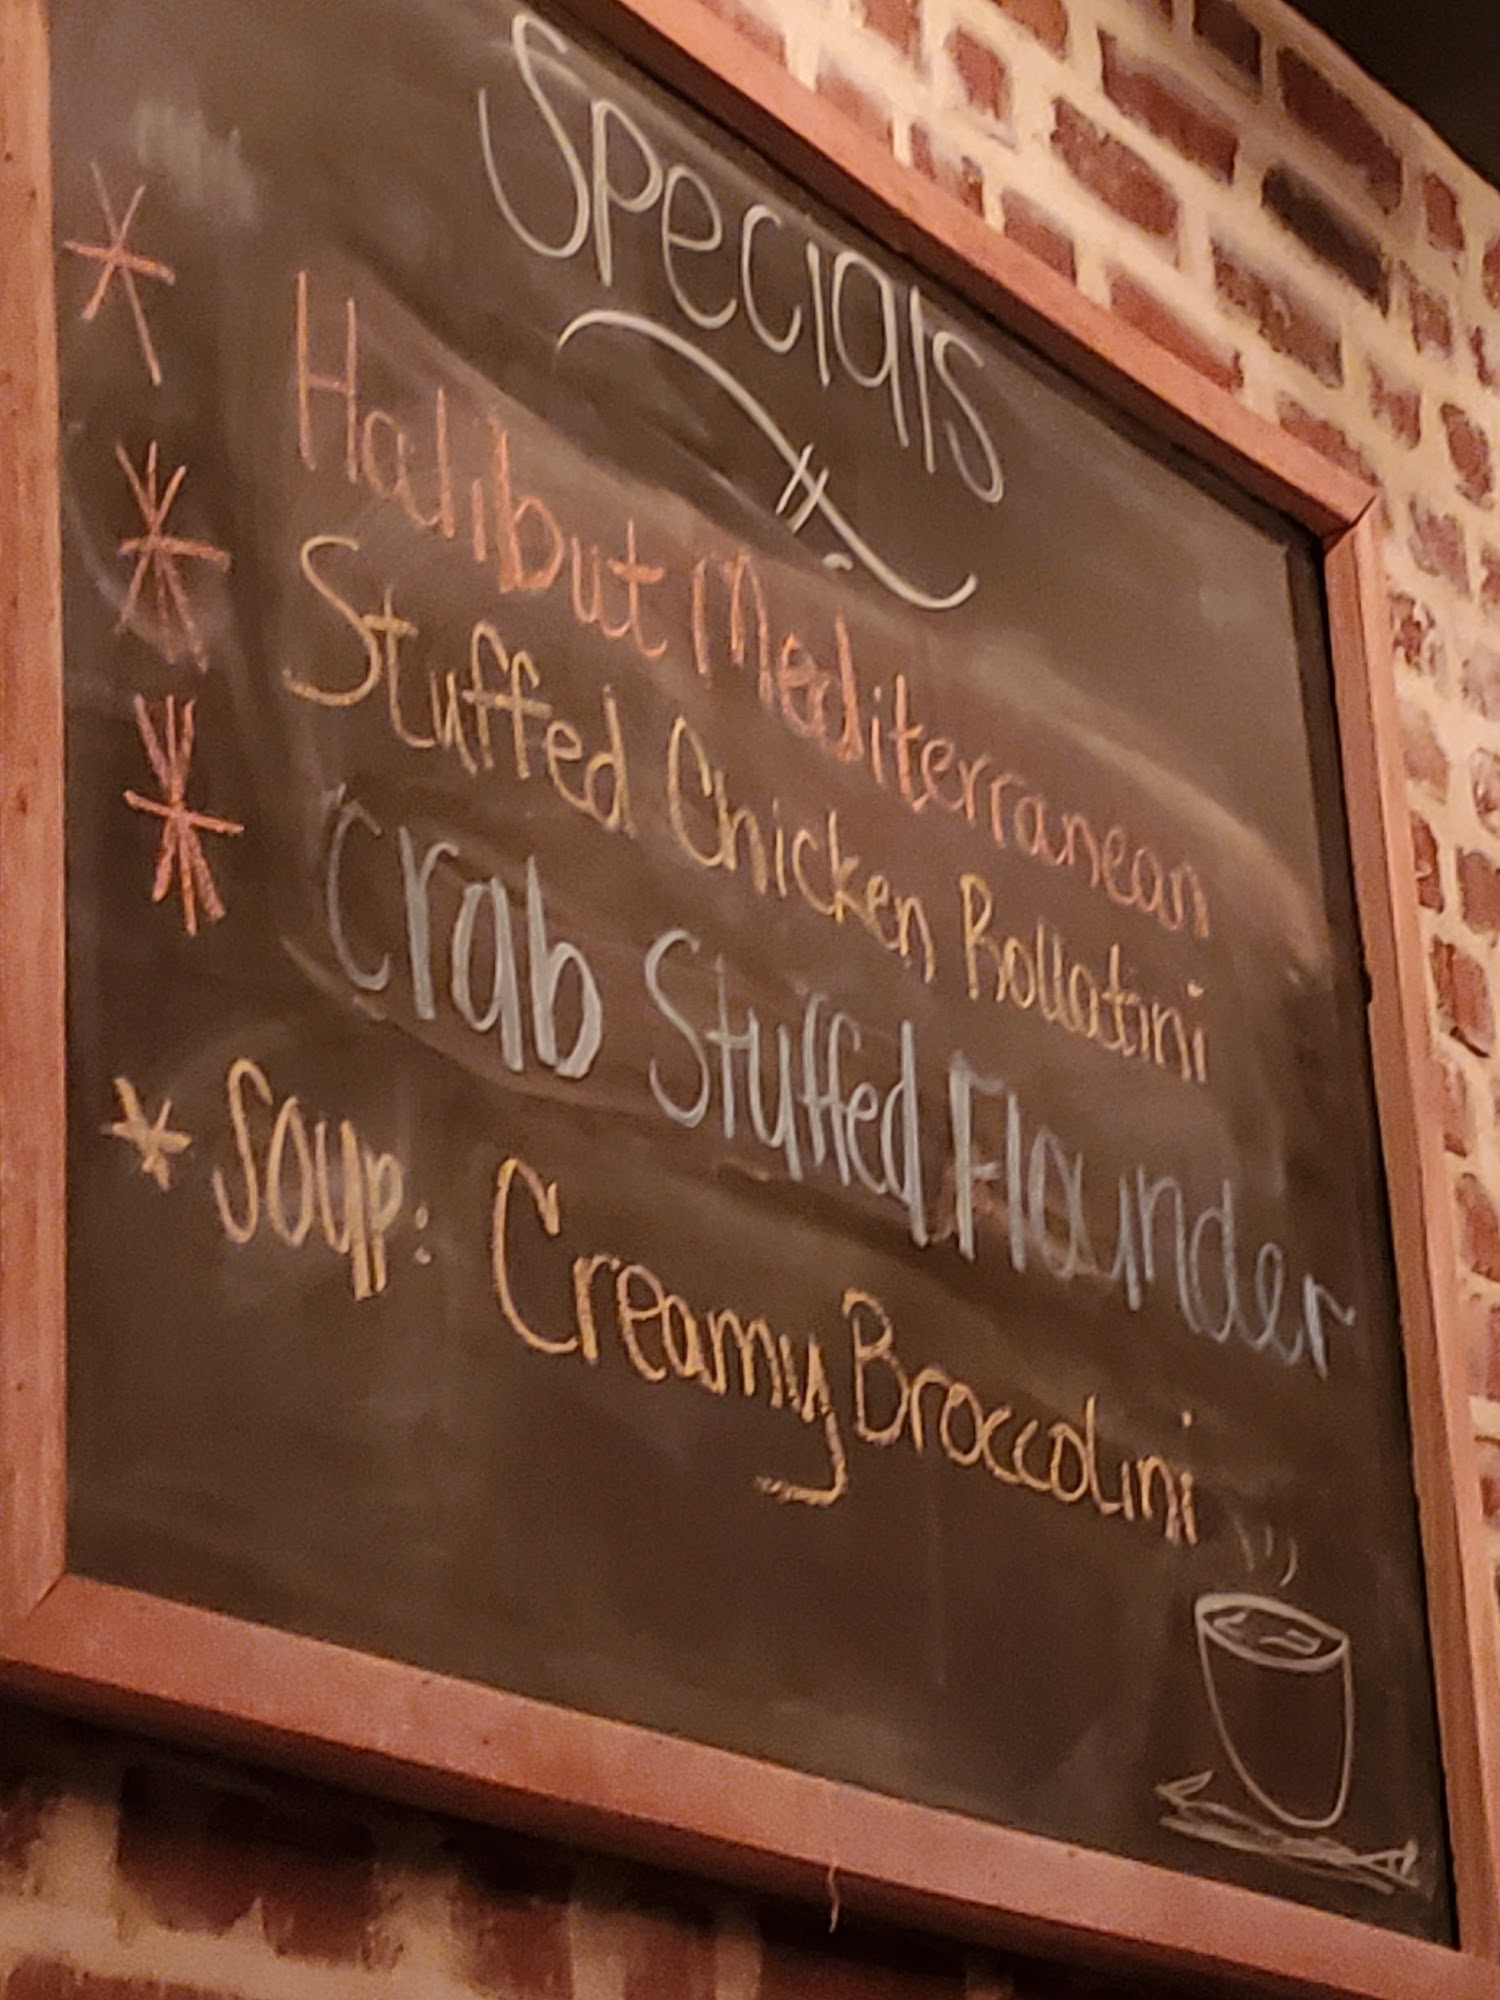 Specials
* Halibut Mediterranean
* Stuffed Chicken Rollatini
* Crab Stuffed Flounder
* Soup: Creamy Broccolini